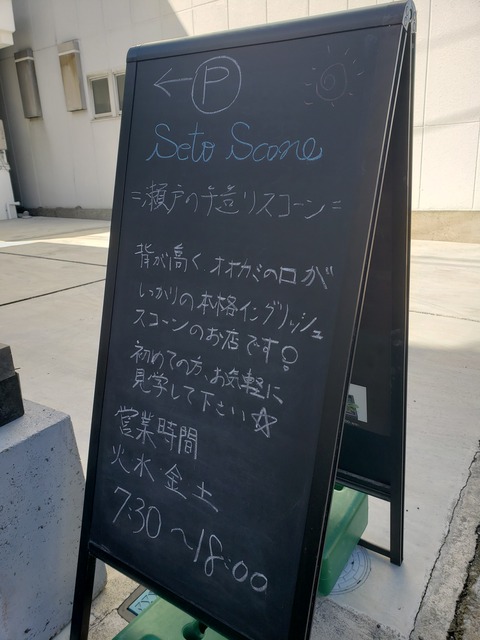 ← P
Seto Scone
=瀬戸の手造りスコーン=
背が高く オオカミの口が
いっかりの本格イングリッシュ
スコーンのお店です!
初めての方、お気軽に
見学して下さい☆
営業時間
火水金土
7:30〜18:00